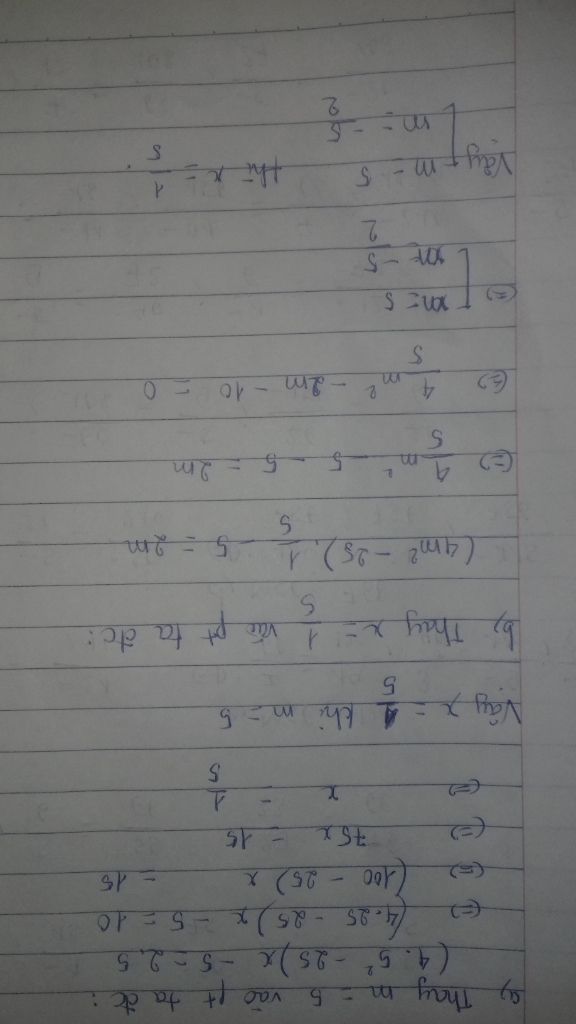 a) Thay m = 5 vào pt ta đc:
(4.5² - 25)x - 5 = 2.5
(=) (4.25 - 25)x - 5 = 10
(=) (100 - 25)x = 15
(=) 75x = 15
(=) x = 1/5
Vậy x = 1/5 khi m = 5
b) Thay x = 1/5 vào pt ta đc:
(4m² - 25).1/5 - 5 = 2m
(=) 4/5 m² - 5 - 5 = 2m
(=) 4/5 m² - 2m - 10 = 0
(=) [ m = 5
m = -5/2
Vậy [ m = 5 thì x = 1/5.
m = -5/2